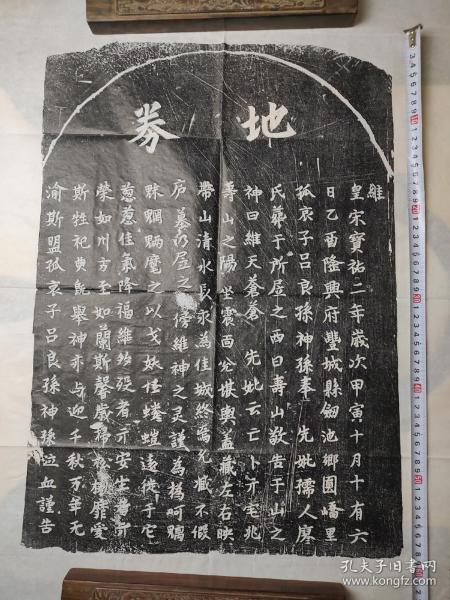 地券
維
皇宋寶祐二年歲次甲寅十月十有六
日乙酉隆興府豐城縣劒池鄉園嶓里
孤哀子呂良孫神孫奉 先妣孺人廖
氏葬于所居之西曰壽山敢告于山之
神曰維天蒼蒼 先妣云亡卜斤宅兆
壽山之陽坐震面兊堪輿蓋藏左右映
帶山清水長永為佳城終焉允臧不假
庐墓乃居之傍維神之灵謹為撝呵魑
魅魍魎麾之以戈妖怪螻螘遠徙于它
葱葱佳氣降福維多殁者亦安生者亦
榮如川方至如蘭斯馨歲稀松檟靡愛
斯牲祀典能舉神亦与迎千秋万年无
渝斯盟孤哀子呂良孫神孫泣血謹告
孔夫子旧书网
book.kongfz.com